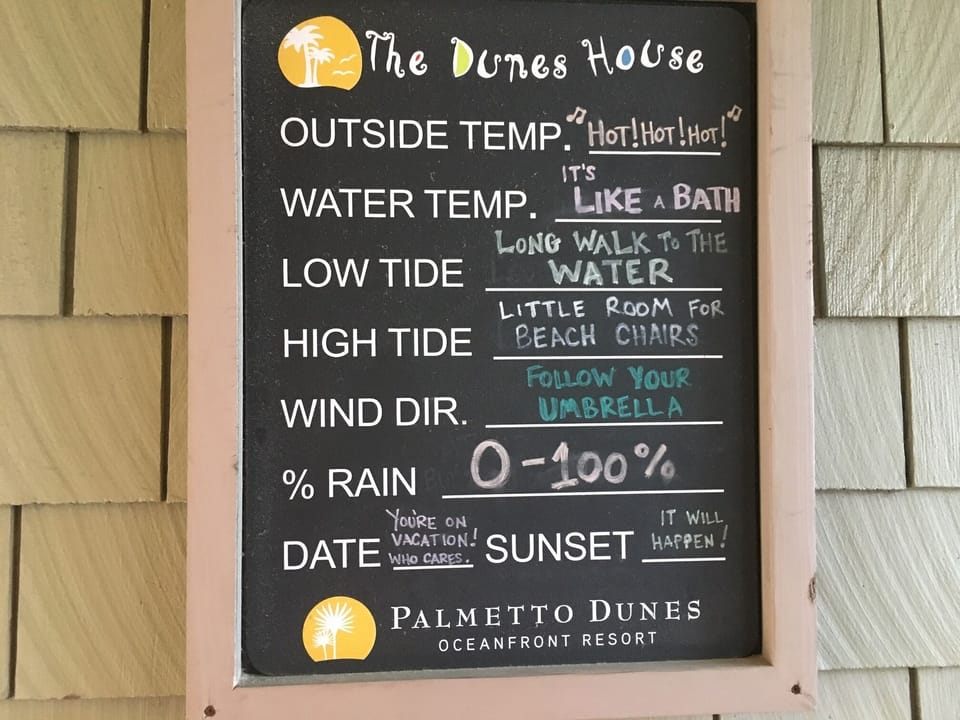 The Dunes House
OUTSIDE TEMP. "HOT! HOT! HOT!"
WATER TEMP. IT'S
LIKE A BATH
LOW TIDE LONG WALK TO THE
WATER
HIGH TIDE LITTLE ROOM FOR
BEACH CHAIRS
WIND DIR. FOLLOW YOUR
UMBRELLA
% RAIN 0-100%
DATE YOU'RE ON
VACATION!
WHO CARES.
SUNSET IT WILL
HAPPEN!
PALMETTO DUNES
OCEANFRONT RESORT